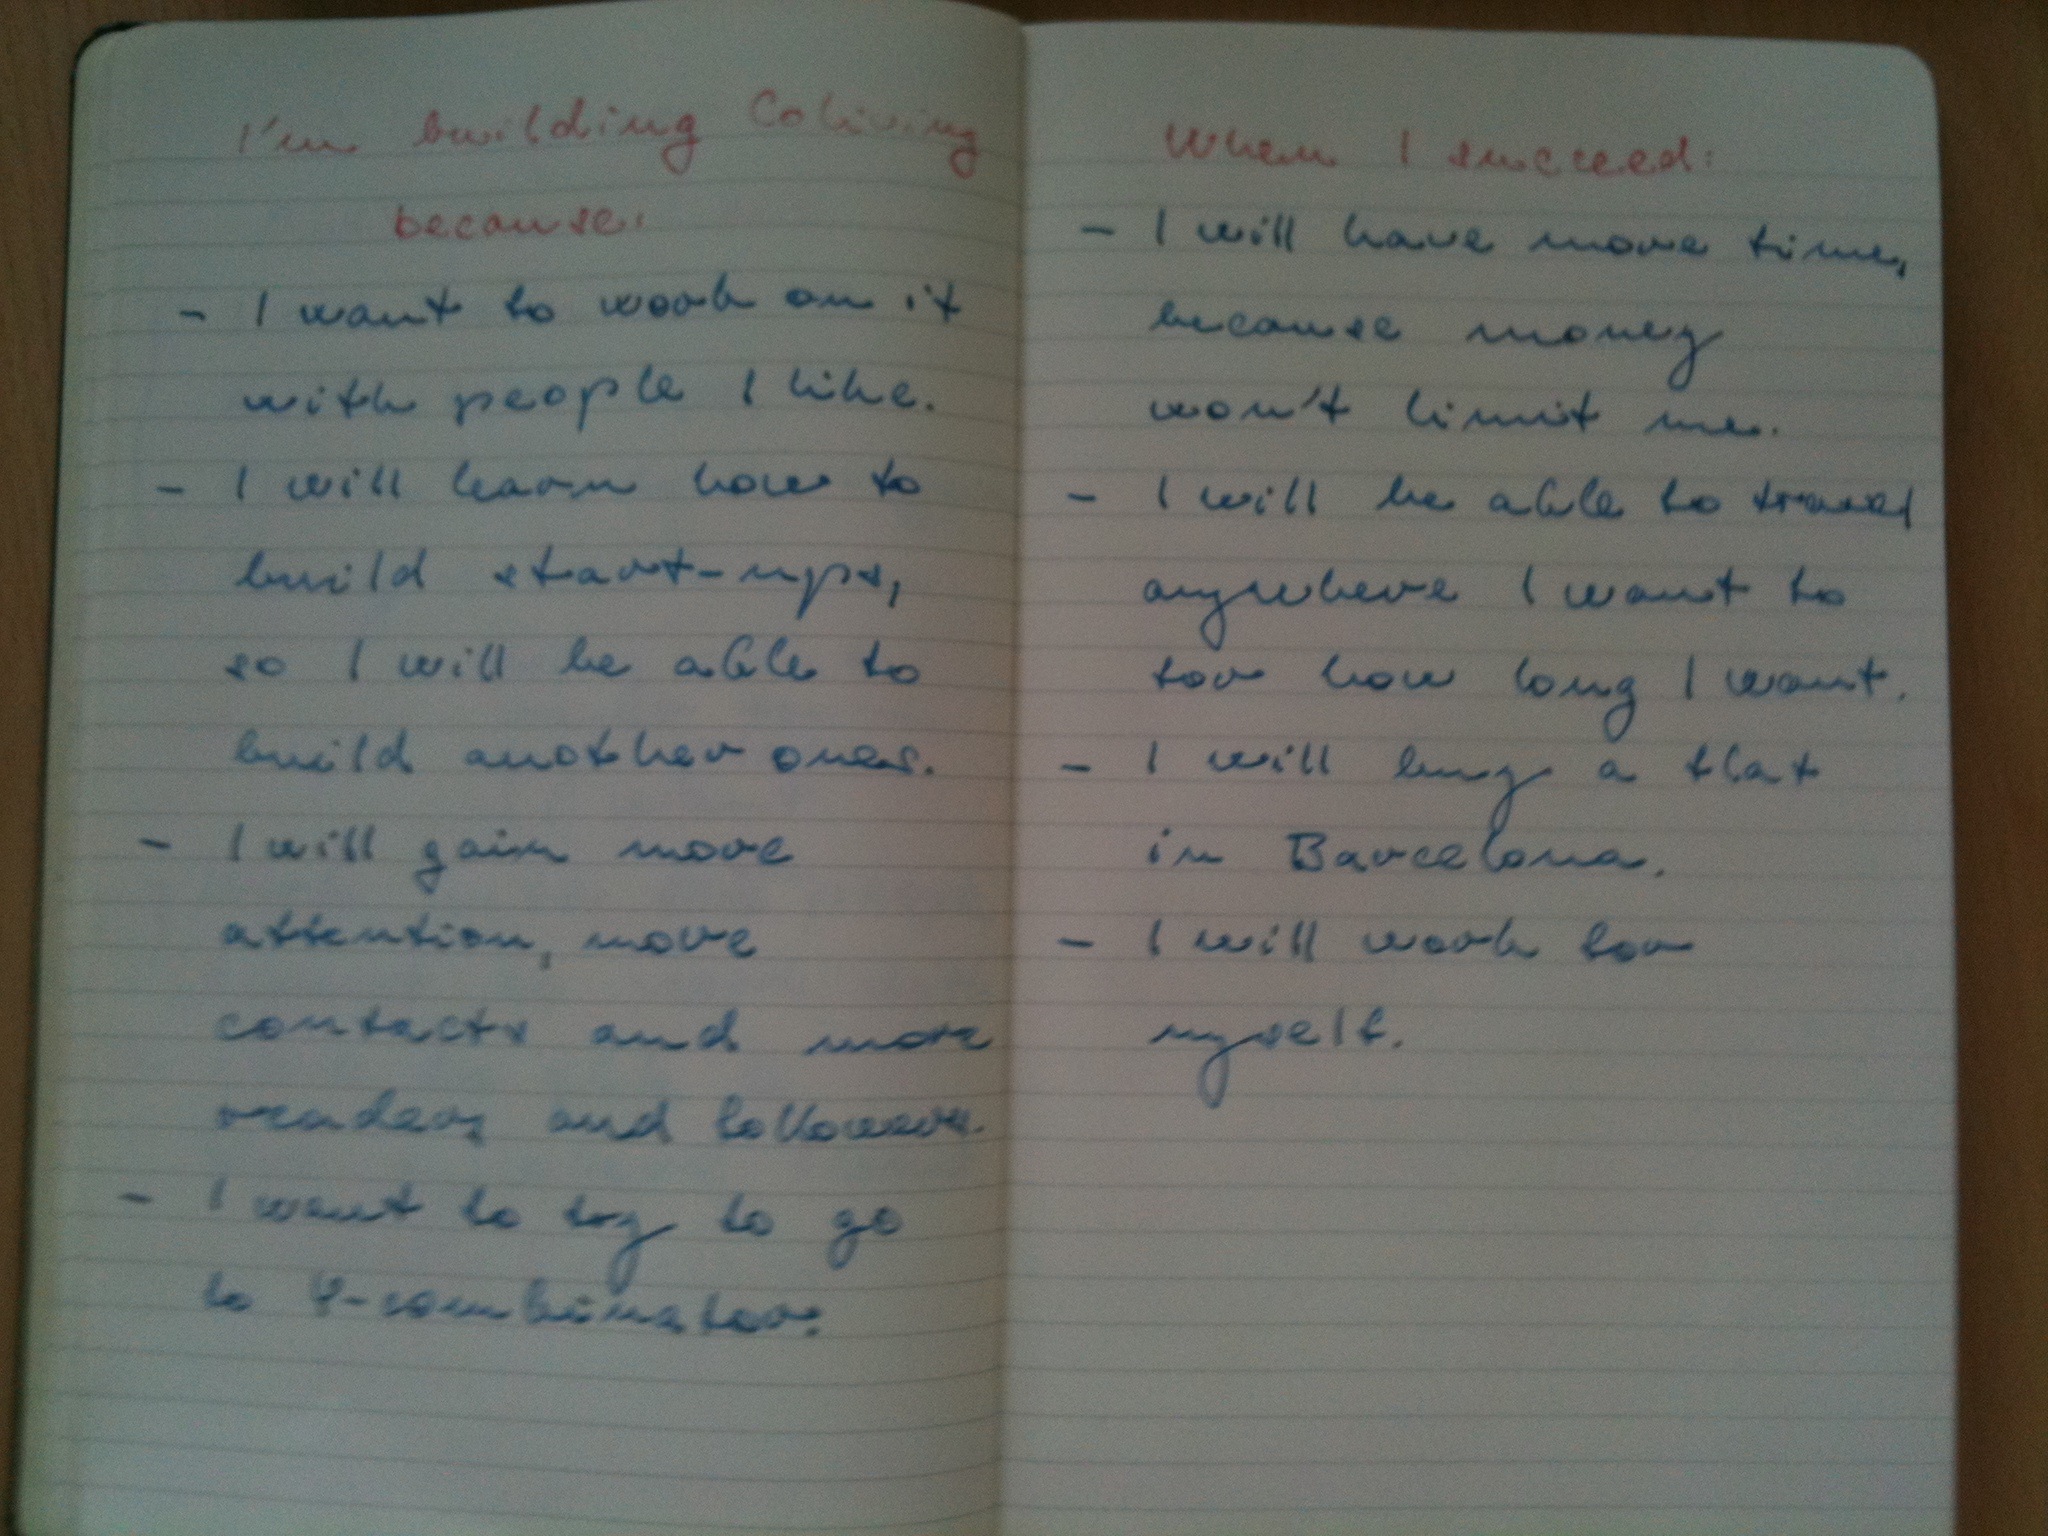 I'm building Coliving
because:
- I want to work on it
with people I like.
- I will learn how to
build start-ups,
so I will be able to
build another ones.
- I will gain more
attention, more
contacts and more
readers and followers.
- I want to try to go
to Y-combinator.
When I succeed:
- I will have more time,
because money
won't limit me.
- I will be able to travel
anywhere I want to
for how long I want.
- I will buy a flat
in Barcelona.
- I will work for
myself.